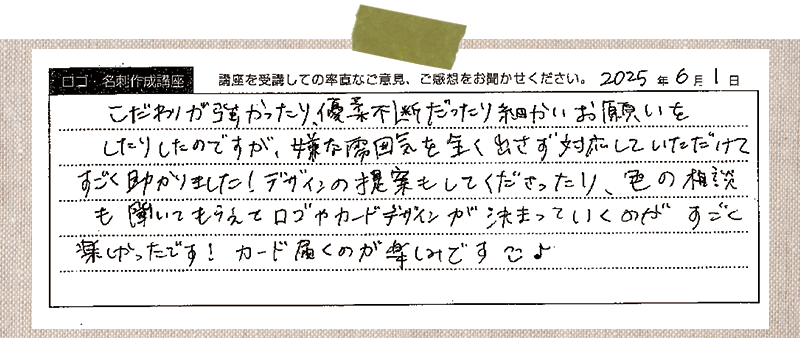 ロゴ・名刺作成講座 講座を受講しての率直なご意見、ご感想をお聞かせください。 2025年6月1日
こだわりが強かったり、優柔不断だったり細かいお願いを
したりしたのですが、嫌な雰囲気を全く出さず対応していただけて
すごく助かりました!デザインの提案もしてくださったり、色の相談
も聞いてもらえてロゴやカードデザインが決まっていくのがすごく
楽しかったです! カード届くのが楽しみです♪